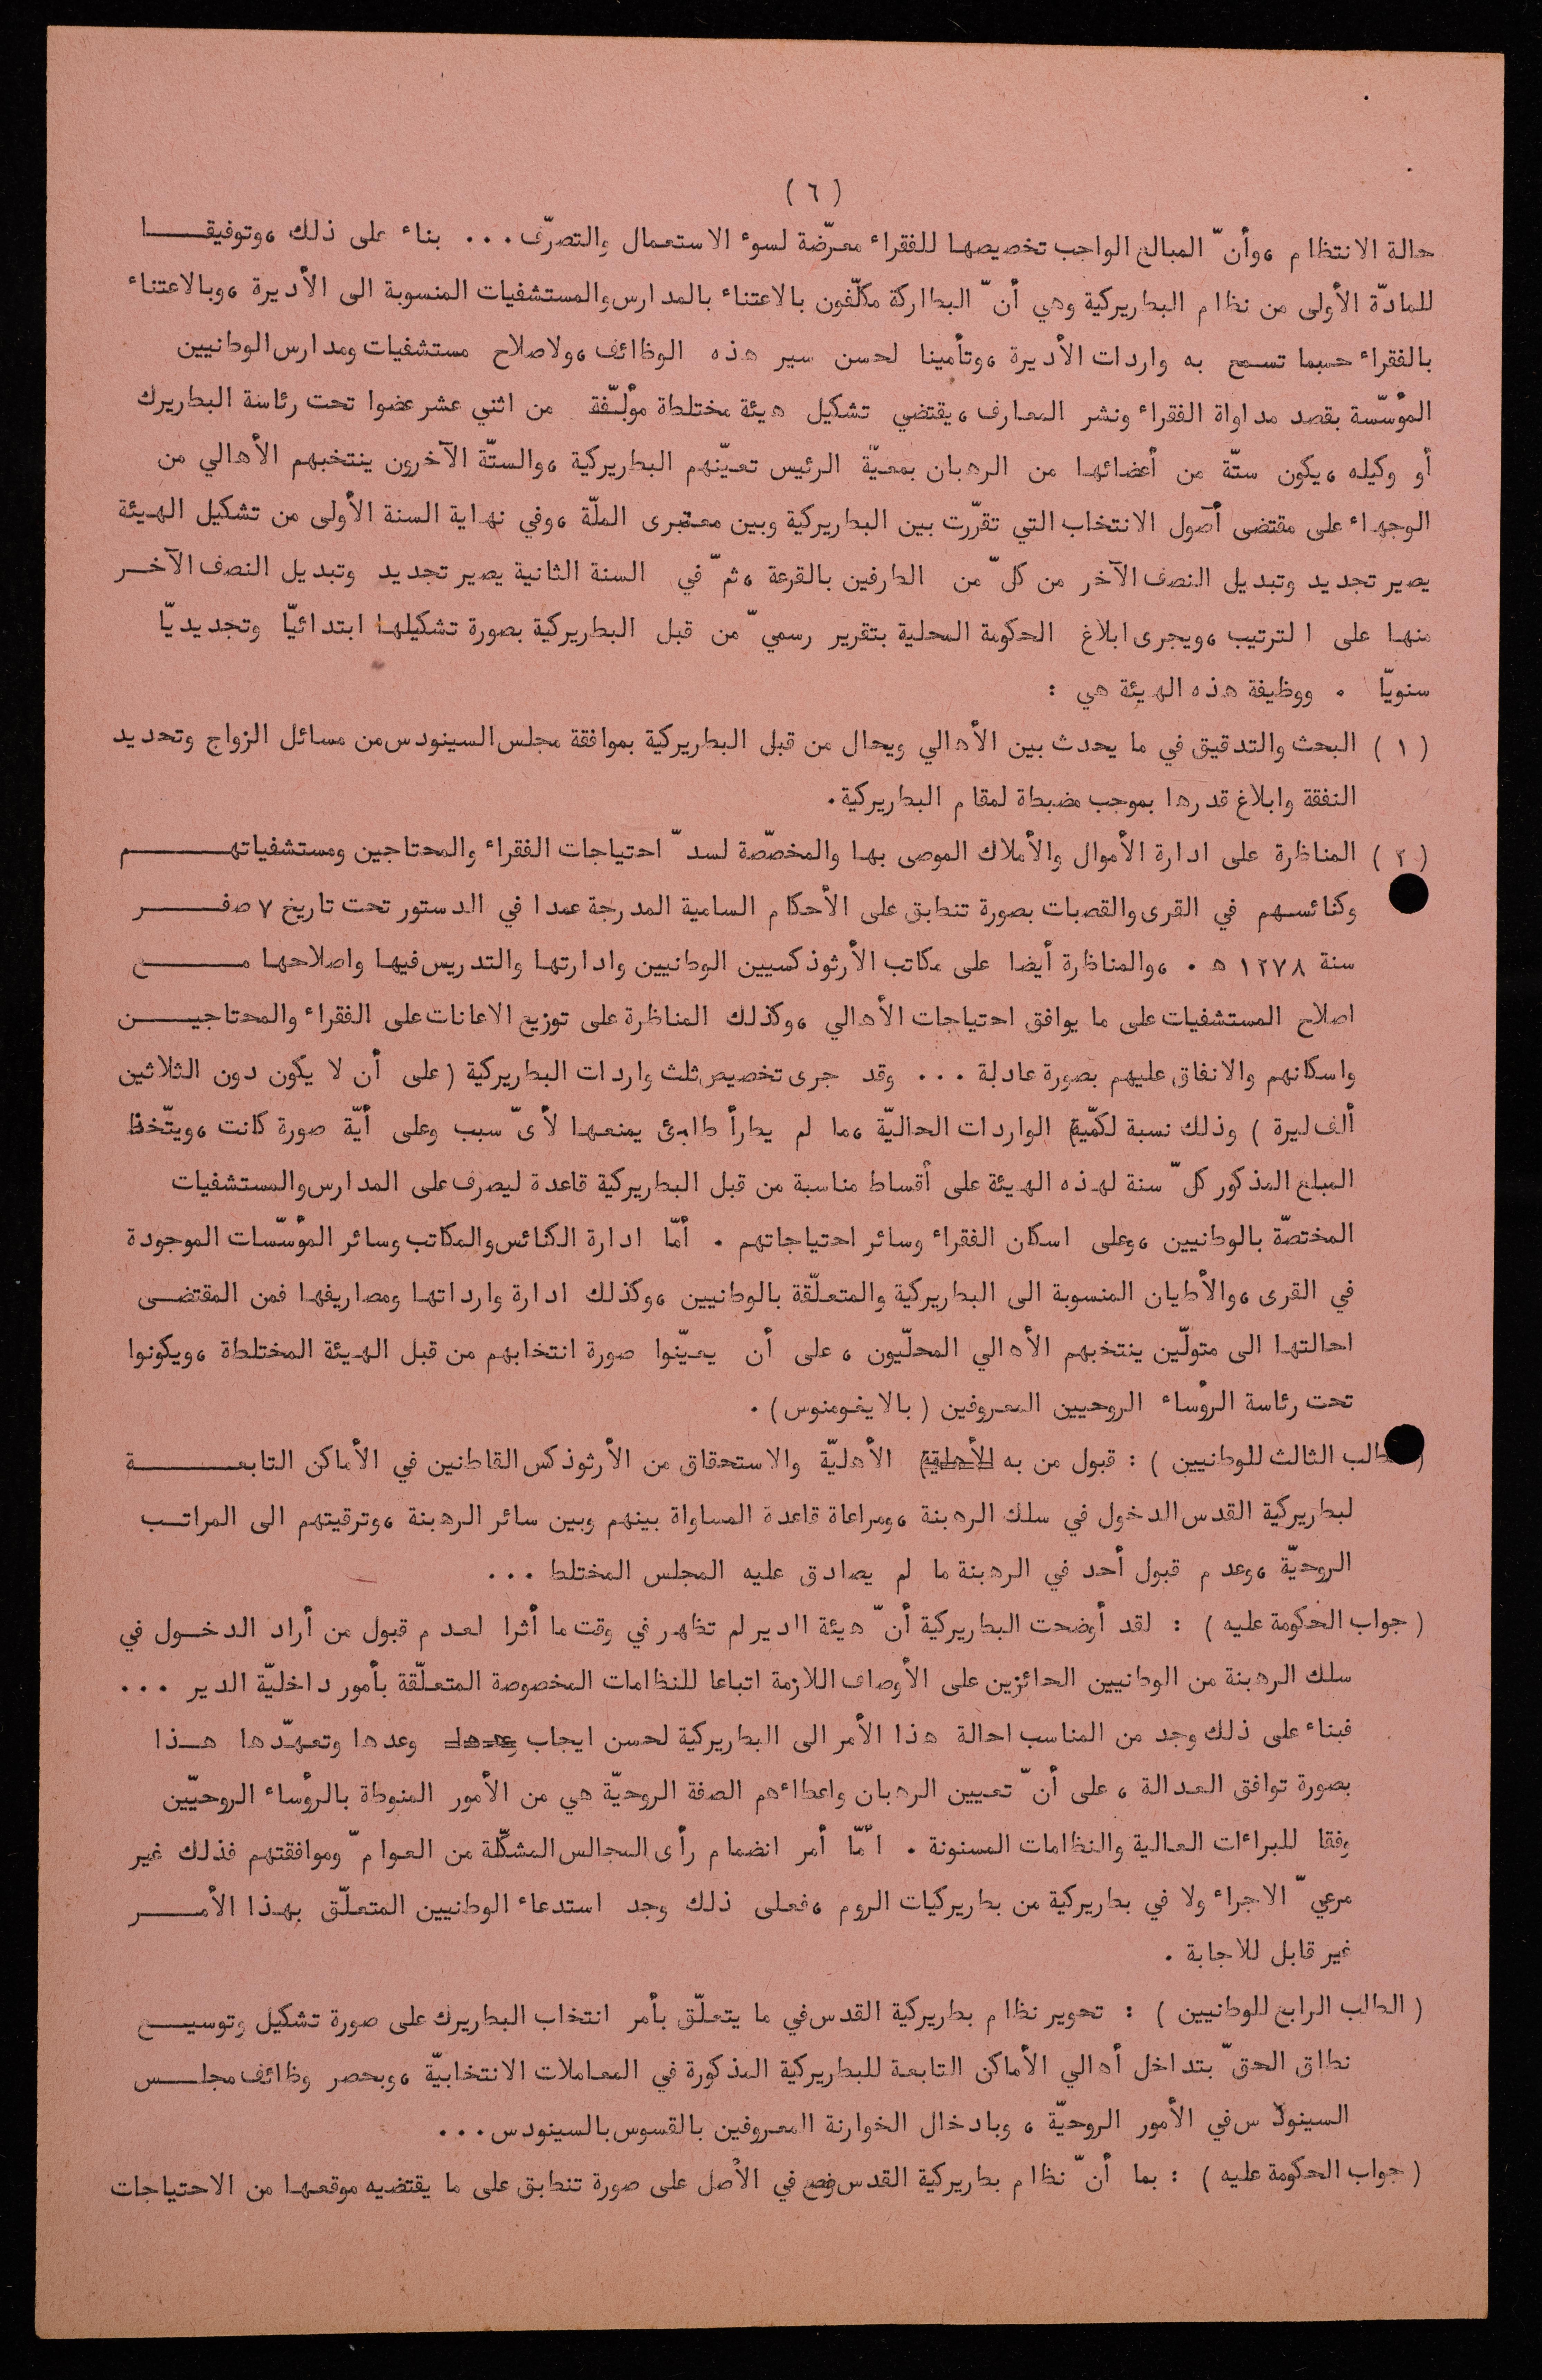 (٦)
حالة الانتظام ،وأنّ المبالغ الواجب تخصيصها للفقراء معرّضة لسوء الاستعمال والتصرّف... بناء على ذلك ،وتوفيقا
للمادّة الأولى من نظام البطريركية وهي أنّ البطاركة مكلّفون بالاعتناء بالمدارس والمستشفيات المنسوبة الى الأديرة ،وبالاعتناء
بالفقراء حسبما تسمح به واردات الأديرة ،وتأمينا لحسن سير هذه الوظائف ،ولاصلاح مستشفيات ومدارس الوطانيين
المؤسّسة بقصد مداواة الفقراء ونشر المعارف ،يقتضي تشكيل هيئة مختلطة مؤلّفة من اثني عشر عضوا تحت رئاسة البطريرك
أو وكيله ،يكون ستّة من أعضائها من الرهبان بمعيّة الرئيس تعيّنهم البطريركية ،والستّة الآخرون ينتخبهم الأهالي من
الوجهاء على مقتضى أصول الانتخاب التي تقرّرت بين البطريركية وبين معتبرى الملّة ،وفي نهاية السنة الأولى من تشكيل الهيئة
يصير تجديد وتبديل النصف الآخر من كلّ من الطرفين بالقرعة ،ثمّ في السنة الثانية يصير تجديد وتبديل النصف الآخر
منها على الترتيب ،ويجرى ابلاغ الحكومة المحلية بتقرير رسميّ من قبل البطريركية بصورة تشكيلها ابتدائيّا وتجديديّا
سنويّا . ووظيفة هذه الهيئة هي :
(١) البحث والتدقيق في ما يحدث بين الأهالي ويحال من قبل البطريركية بموافقة مجلس السينودس من مسائل الزواج وتحديد
النفقة وابلاغ قدرها بموجب مضبطة لمقام البطريركية.
(٢) المناظرة على ادارة الأموال والأملاك الموصى بها والمخصّصة لسدّ احتياجات الفقراء والمحتاجين ومستشفياتهم
وكنائسهم في القرى والقصبات بصورة تنطبق على الأحكام السامية المدرجة عمدا في الدستور تحت تاريخ ٧ صفر
سنة ١٢٧٨ هـ . ،والمناظرة أيضا على مكاتب الأرثوذكسيين الوطنيين وادارتها والتدريس فيها واصلاحها مع
اصلاح المستشفيات على ما يوافق احتياجات الأهالي ،وكذلك المناظرة على توزيع الاعانات على الفقراء والمحتاجين
واسكانهم والانفاق عليهم بصورة عادلة ... وقد جرى تخصيص ثلث واردات البطريركية (على أن لا يكون دون الثلاثين
ألف ليرة ) وذلك نسبة لكمّية الواردات الحاليّة ،ما لم يطرأ طارئ يمنعها لأىّ سبب وعلى أيّة صورة كانت ،ويتّخذ
المبلغ المذكور كلّ سنة لهذه الهيئة على أقساط مناسبة من قبل البطريركية قاعدة ليصرف على المدارس والمستشفيات
المختصّة بالوطنيين ،وعلى اسكان الفقراء وسائر احتياجاتهم . أمّا ادارة الكنائس والمكاتب وسائر المؤسّسات الموجودة
في القرى ،والأطيان المنسوبة الى البطريركية والمتعلّقة بالوطنيين ،وكذلك ادارة وارداتها ومصاريفها فمن المقتضى
احالتها الى متولّين ينتخبهم الأهالي المحلّيون ، على أن يعيّنوا صورة انتخابهم من قبل الهيئة المختلطة ،ويكونوا
تحت رئاسة الرؤساء الروحيين المعروفين (بالايغومنوس) .
(طالب الثالث للوطنيين ) : قبول من به الأهلية الأهليّة والاستحقاق من الأرثوذكس القاطنين في الأماكن التابعة
لبطريركية القدس الدخول في سلك الرهبنة ،ومراعاة قاعدة المساواة بينهم وبين سائر الرهبنة ،وترقيتهم الى المراتب
الروحيّة ،وعدم قبول أحد في الرهبنة ما لم يصادق عليه المجلس المختلط ...
(جواب الحكومة عليه ) : لقد أوضحت البطريركية أنّ هيئة الدير لم تظهر في وقت ما أثرا لعدم قبول من أراد الدخول في
سلك الرهبنة من الوطنيين الحائزين على الأوصاف اللازمة اتباعا للنظامات المخصوصة المتعلّقة بأمور داخليّة الدير ...
فبناء على ذلك وجد من المناسب احالة هذا الأمر الى البطريركية لحسن ايجاب وعدها وعدها وتعهّدها هذا
بصورة توافق العدالة ، على أنّ تعيين الرهبان واعطائهم الصفة الروحيّة هي من الأمور المنوطة بالرؤساء الروحيّين
وفقا للبراءات العالية والنظامات المسنونة . أمّا أمر انضمام رأى المجالس المشكّلة من العوامّ وموافقتهم فذلك غير
مرعيّ الاجراء ولا في بطريركية من بطريركيات الروم ،فعلى ذلك وجد استدعاء الوطنيين المتعلّق بهذا الأمر
غير قابل للاجابة .
(الطلب الرابع للوطنيين ) : تحوير نظام بطريركية القدس في ما يتعلّق بأمر انتخاب البطريرك على صورة تشكيل وتوسيع
نطاق الحقّ بتداخل أهالي الأماكن التابعة للبطريركية المذكورة في المعاملات الانتخابيّة ،وبحصر وظائف مجلس
السينودس في الأمور الروحيّة ، وبادخال الخوارنة المعروفين بالقسوس بالسينودس...
(جواب الحكومة عليه ) : بما أنّ نظام بطريركية القدس وضع في الأصل على صورة تنطبق على ما يقتضيه موقعها من الاحتياجات